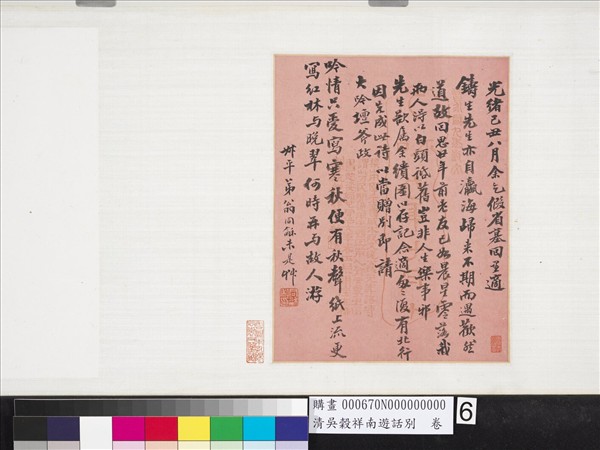 光緒己丑八月余乞假省墓回里適
鑄生先生亦自瀛海歸來不期而遇歡然
道故回思廿年前老友已如晨星零落我
兩人得以白頭話舊豈非人生樂事邪
先生歡屬余續圖以存記念適余復有北行
因先成此詩以當贈別即請
大吟壇斧政
吟情只愛寫寒秋便有秋聲紙上流更
寫紅林与晚翠何時再与故人游
叔平弟翁同龢未是艸
購畫 000670N000000000
清吳穀祥南遊話別 卷
6